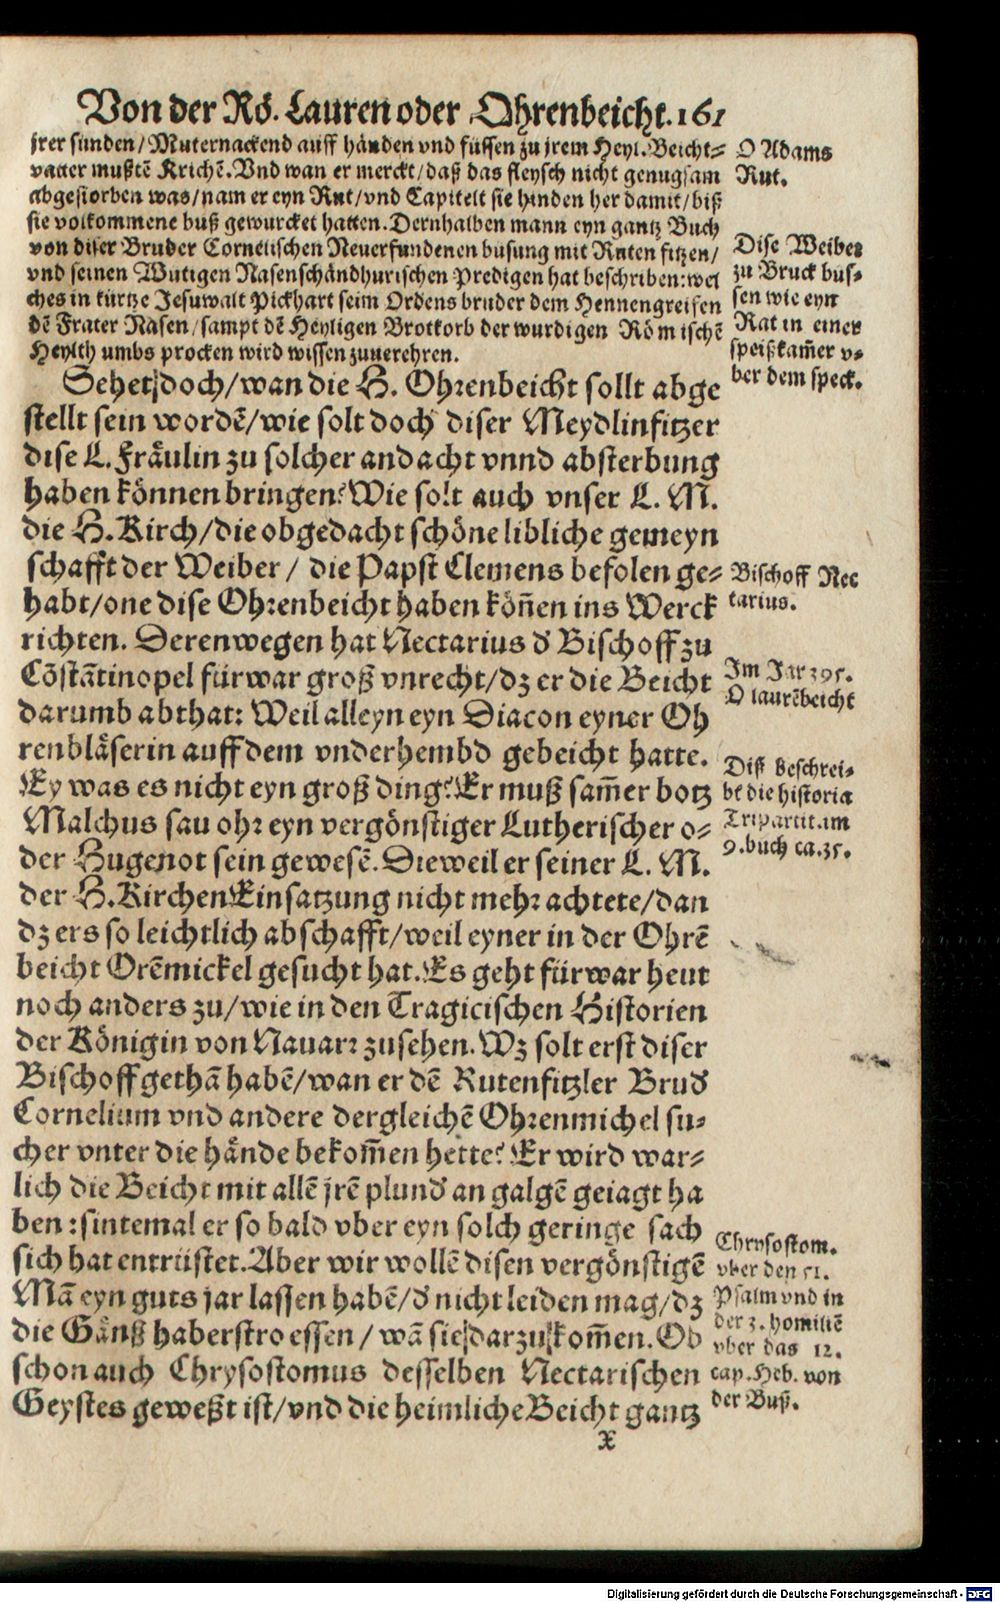 Von der Rö. Lauren oder Ohrenbeicht. 161
jrer sünden/Muternackend auff händen vnd füssen zu jrem Heyl. Beicht-
vatter mustẽ Krichẽ. Vnd wan er merckt/daß das fleysch nicht genugsam
abgestorben was/nam er eyn Rut/vnd Capitelt sie hinden her damit/biß
sie volkommene buß gewurcket hatten. Dernhalben mann eyn gantz Buch
von diser Bruder Cornelischen Neuerfundenen busung mit Ruten fitzen/
vnd seinen Wutigen Nasenschändhurischen Predigen hat beschriben: wel
ches in kürtze Jesuwalt Pickhart seim Ordens bruder dem Hennengreifen
dẽ Frater Nasen/sampt dẽ Heyligen Brotkorb der wurdigen Römischẽ
Heylthumbs procken wird wissen zuuerehren.
Sehet doch/wan die H. Ohrenbeicht sollt abge
stellt sein wordẽ/wie solt doch diser Meydlinfitzer
dise L. Fräulin zu solcher andacht vnnd absterbung
haben können bringen? Wie solt auch vnser L. M.
die H. Kirch/die obgedacht schöne libliche gemeyn
schafft der Weiber/ die Papst Clemens befolen ge-
habt/one dise Ohrenbeicht haben köñen ins Werck
richten. Derenwegen hat Nectarius d̕ Bischoff zu
Cõstãtinopel fürwar groß vnrecht/dz er die Beicht
darumb abthat: Weil alleyn eyn Diacon eyner Oh
renbläserin auff dem vnderhembd gebeicht hatte.
Ey was es nicht eyn groß ding? Er muß sam̃er botz
Malchus sau ohr eyn vergönstiger Lutherischer o-
der Hugenot sein gewesẽ. Dieweil er seiner L. M.
der H. Kirchen Einsatzung nicht mehr achtete/dan
dz ers so leichtlich abschafft/weil eyner in der Ohrẽ
beicht Orẽmickel gesucht hat. Es geht fürwar heut
noch anders zu/wie in den Tragicischen Historien
der Königin von Nauarr zusehen. Wz solt erst diser
Bischoff gethã habẽ/wan er dẽ Rutenfitzler Brud̕
Cornelium vnd andere dergleichẽ Ohrenmichel su-
cher vnter die hände bekom̃en hette? Er wird war-
lich die Beicht mit allẽ jrẽ plund̕ an galgẽ geiagt ha
ben: sintemal er so bald vber eyn solch geringe sach
sich hat entrüstet. Aber wir wollẽ disen vergönstigẽ
Mã eyn guts jar lassen habẽ/d̕ nicht leiden mag/dz
die Gänß haberstro essen/ wã sie darzu kom̃en. Ob
schon auch Chrysostomus desselben Nectarischen
Geystes geweßt ist/vnd die heimliche Beicht gantz
X
O Adams
Rut.
Dise Weiber
zu Bruck büs-
sen wie eyn
Rat in einer
speißkam̃er v-
ber dem speck.
Bischoff Nec
tarius.
Im Jar 395.
O laurẽbeicht
Diß beschrei-
bt die historia
Tripartitam
9. buch ca. 35.
Chrysostom.
vber den 51.
Psalm vnd in
der 3. homiliẽ
vber das 12.
cap. Heb. von
der Buß.
Digitalisierung gefördert durch die Deutsche Forschungsgemeinschaft - DFG